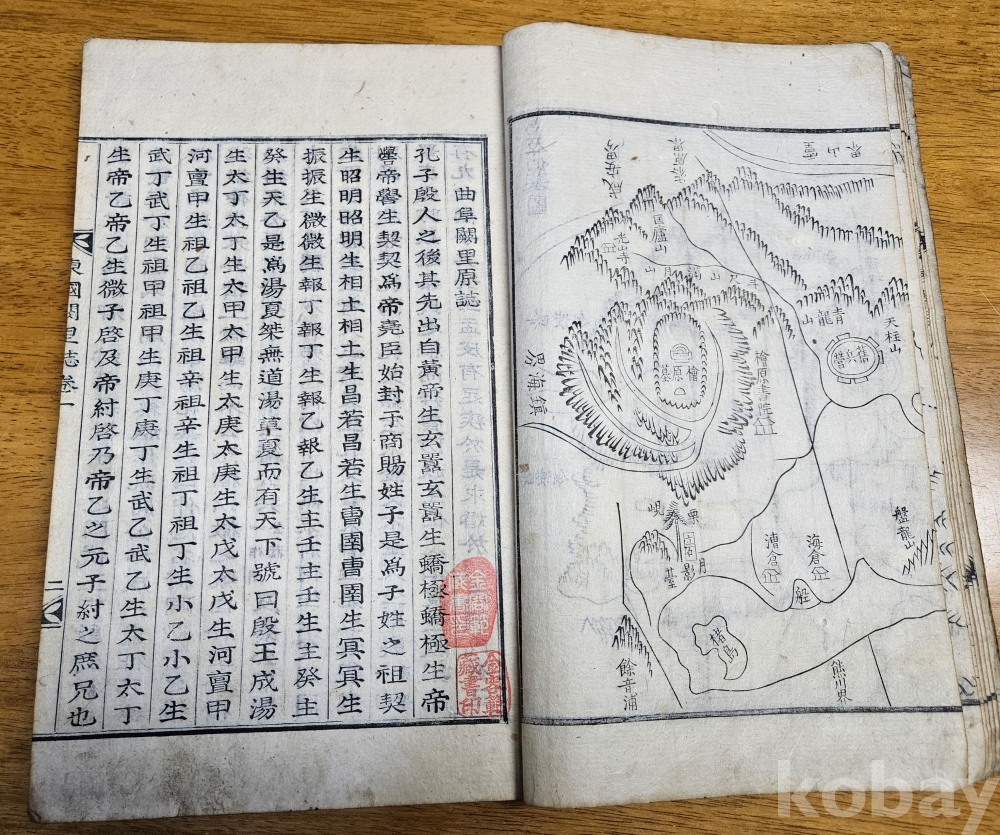 匡廬山
天柱山
青龍山
舊兵營
檜原書院
檜原墓
盤龍山
海倉
漕倉
船
月影臺
猪島
熊川界
餘音浦
曲阜闕里原誌
孔子殷人之後其先出自黃帝生玄囂玄囂生蟜極蟜極生帝
嚳帝嚳生契契爲帝堯臣始封于商賜姓子是爲子姓之祖契
生昭明昭明生相土相土生昌若昌若生曺圉曺圉生冥冥生
振振生微微生報丁報丁生報乙報乙生主壬主壬生主癸主
癸生天乙是爲湯夏桀無道湯革夏而有天下號曰殷王成湯
生太丁太丁生太甲太甲生太庚太庚生太戊太戊生河亶甲
河亶甲生祖乙祖乙生祖辛祖辛生祖丁祖丁生小乙小乙生
武丁武丁生祖甲祖甲生庚丁庚丁生武乙武乙生太丁太丁
生帝乙帝乙生微子啓及帝紂啓乃帝乙之元子紂之庶兄也
東國闕里誌卷一
二
藏書印
kobay